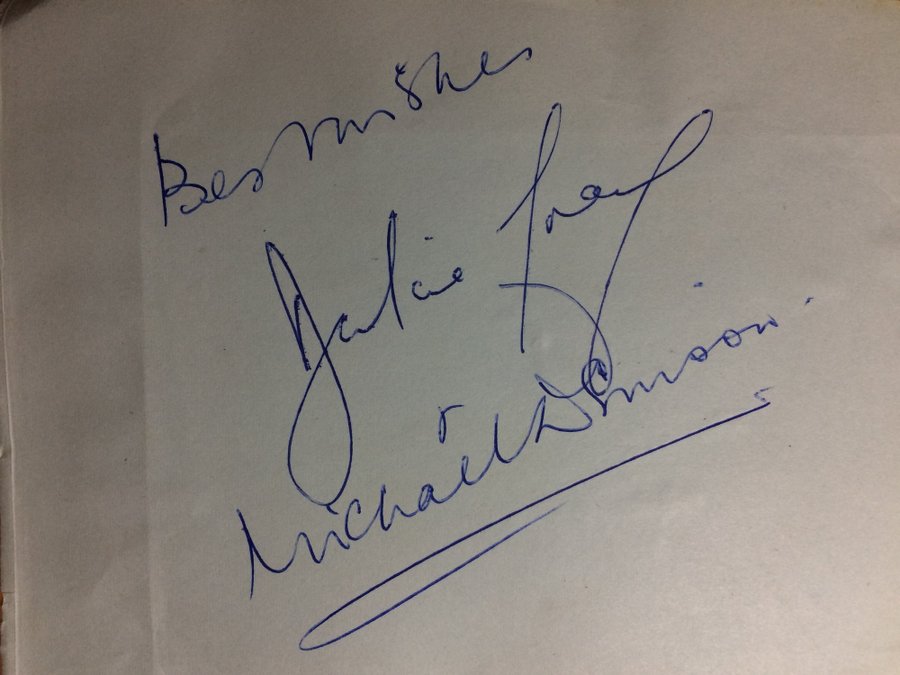 Best wishes
Dulcie Gray
Michael Denison.